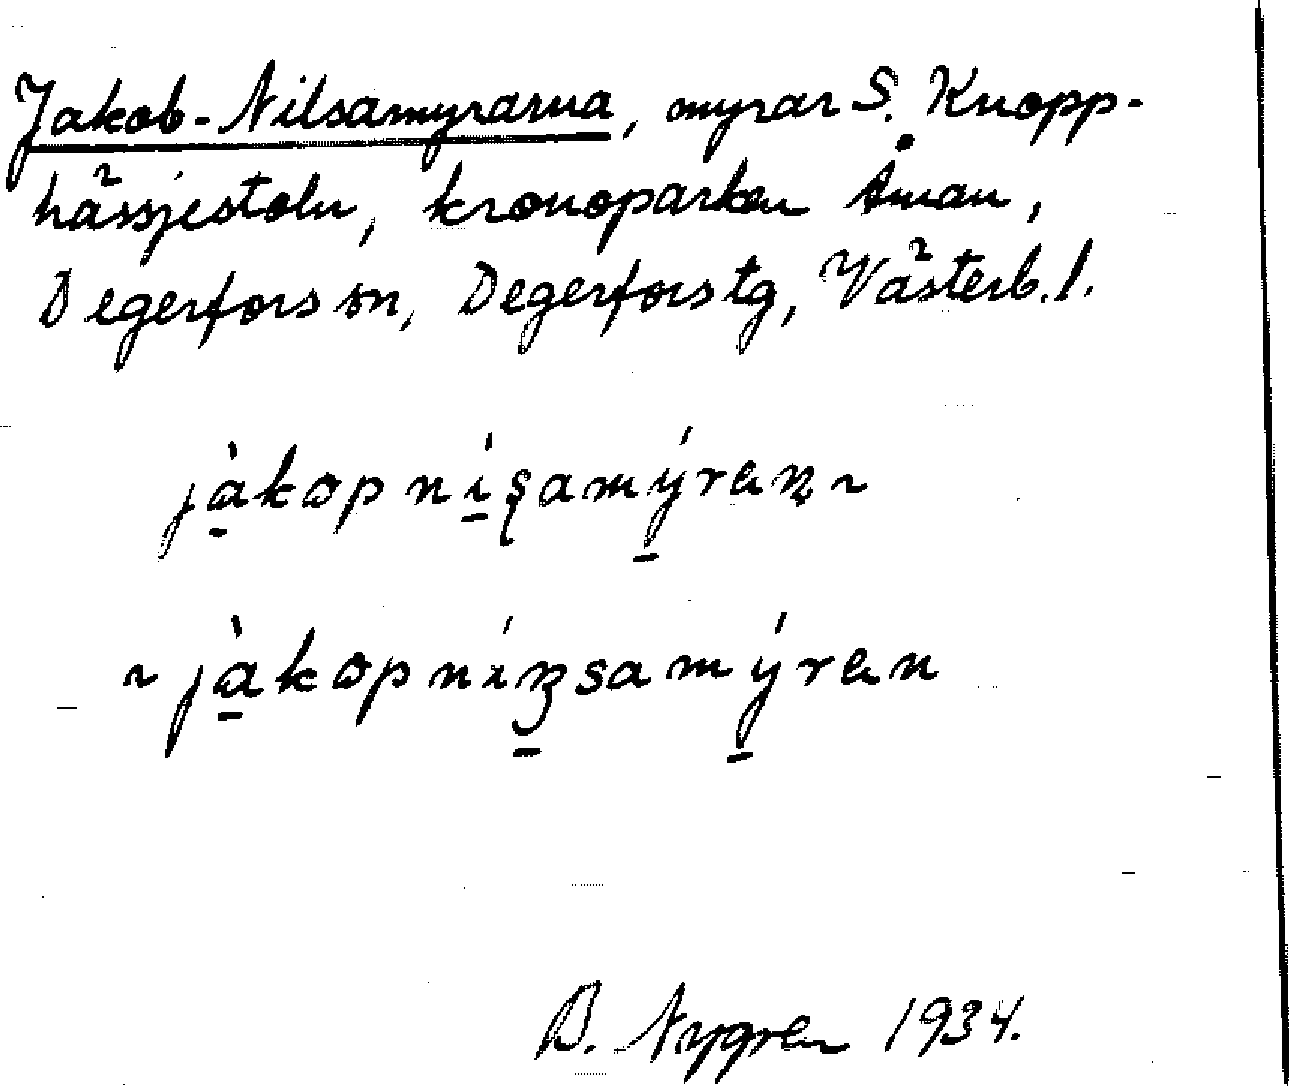 Jakob-Nilsamyrarna, myrar S. Knopp-
hässjestoln, kronoparken Åman,
Degerfors sn, Degerfors tg, Västerb. l.
jàkop níʂamýraɳ ~
~ jàkop níɳsamýran
B. Nygren 1934.